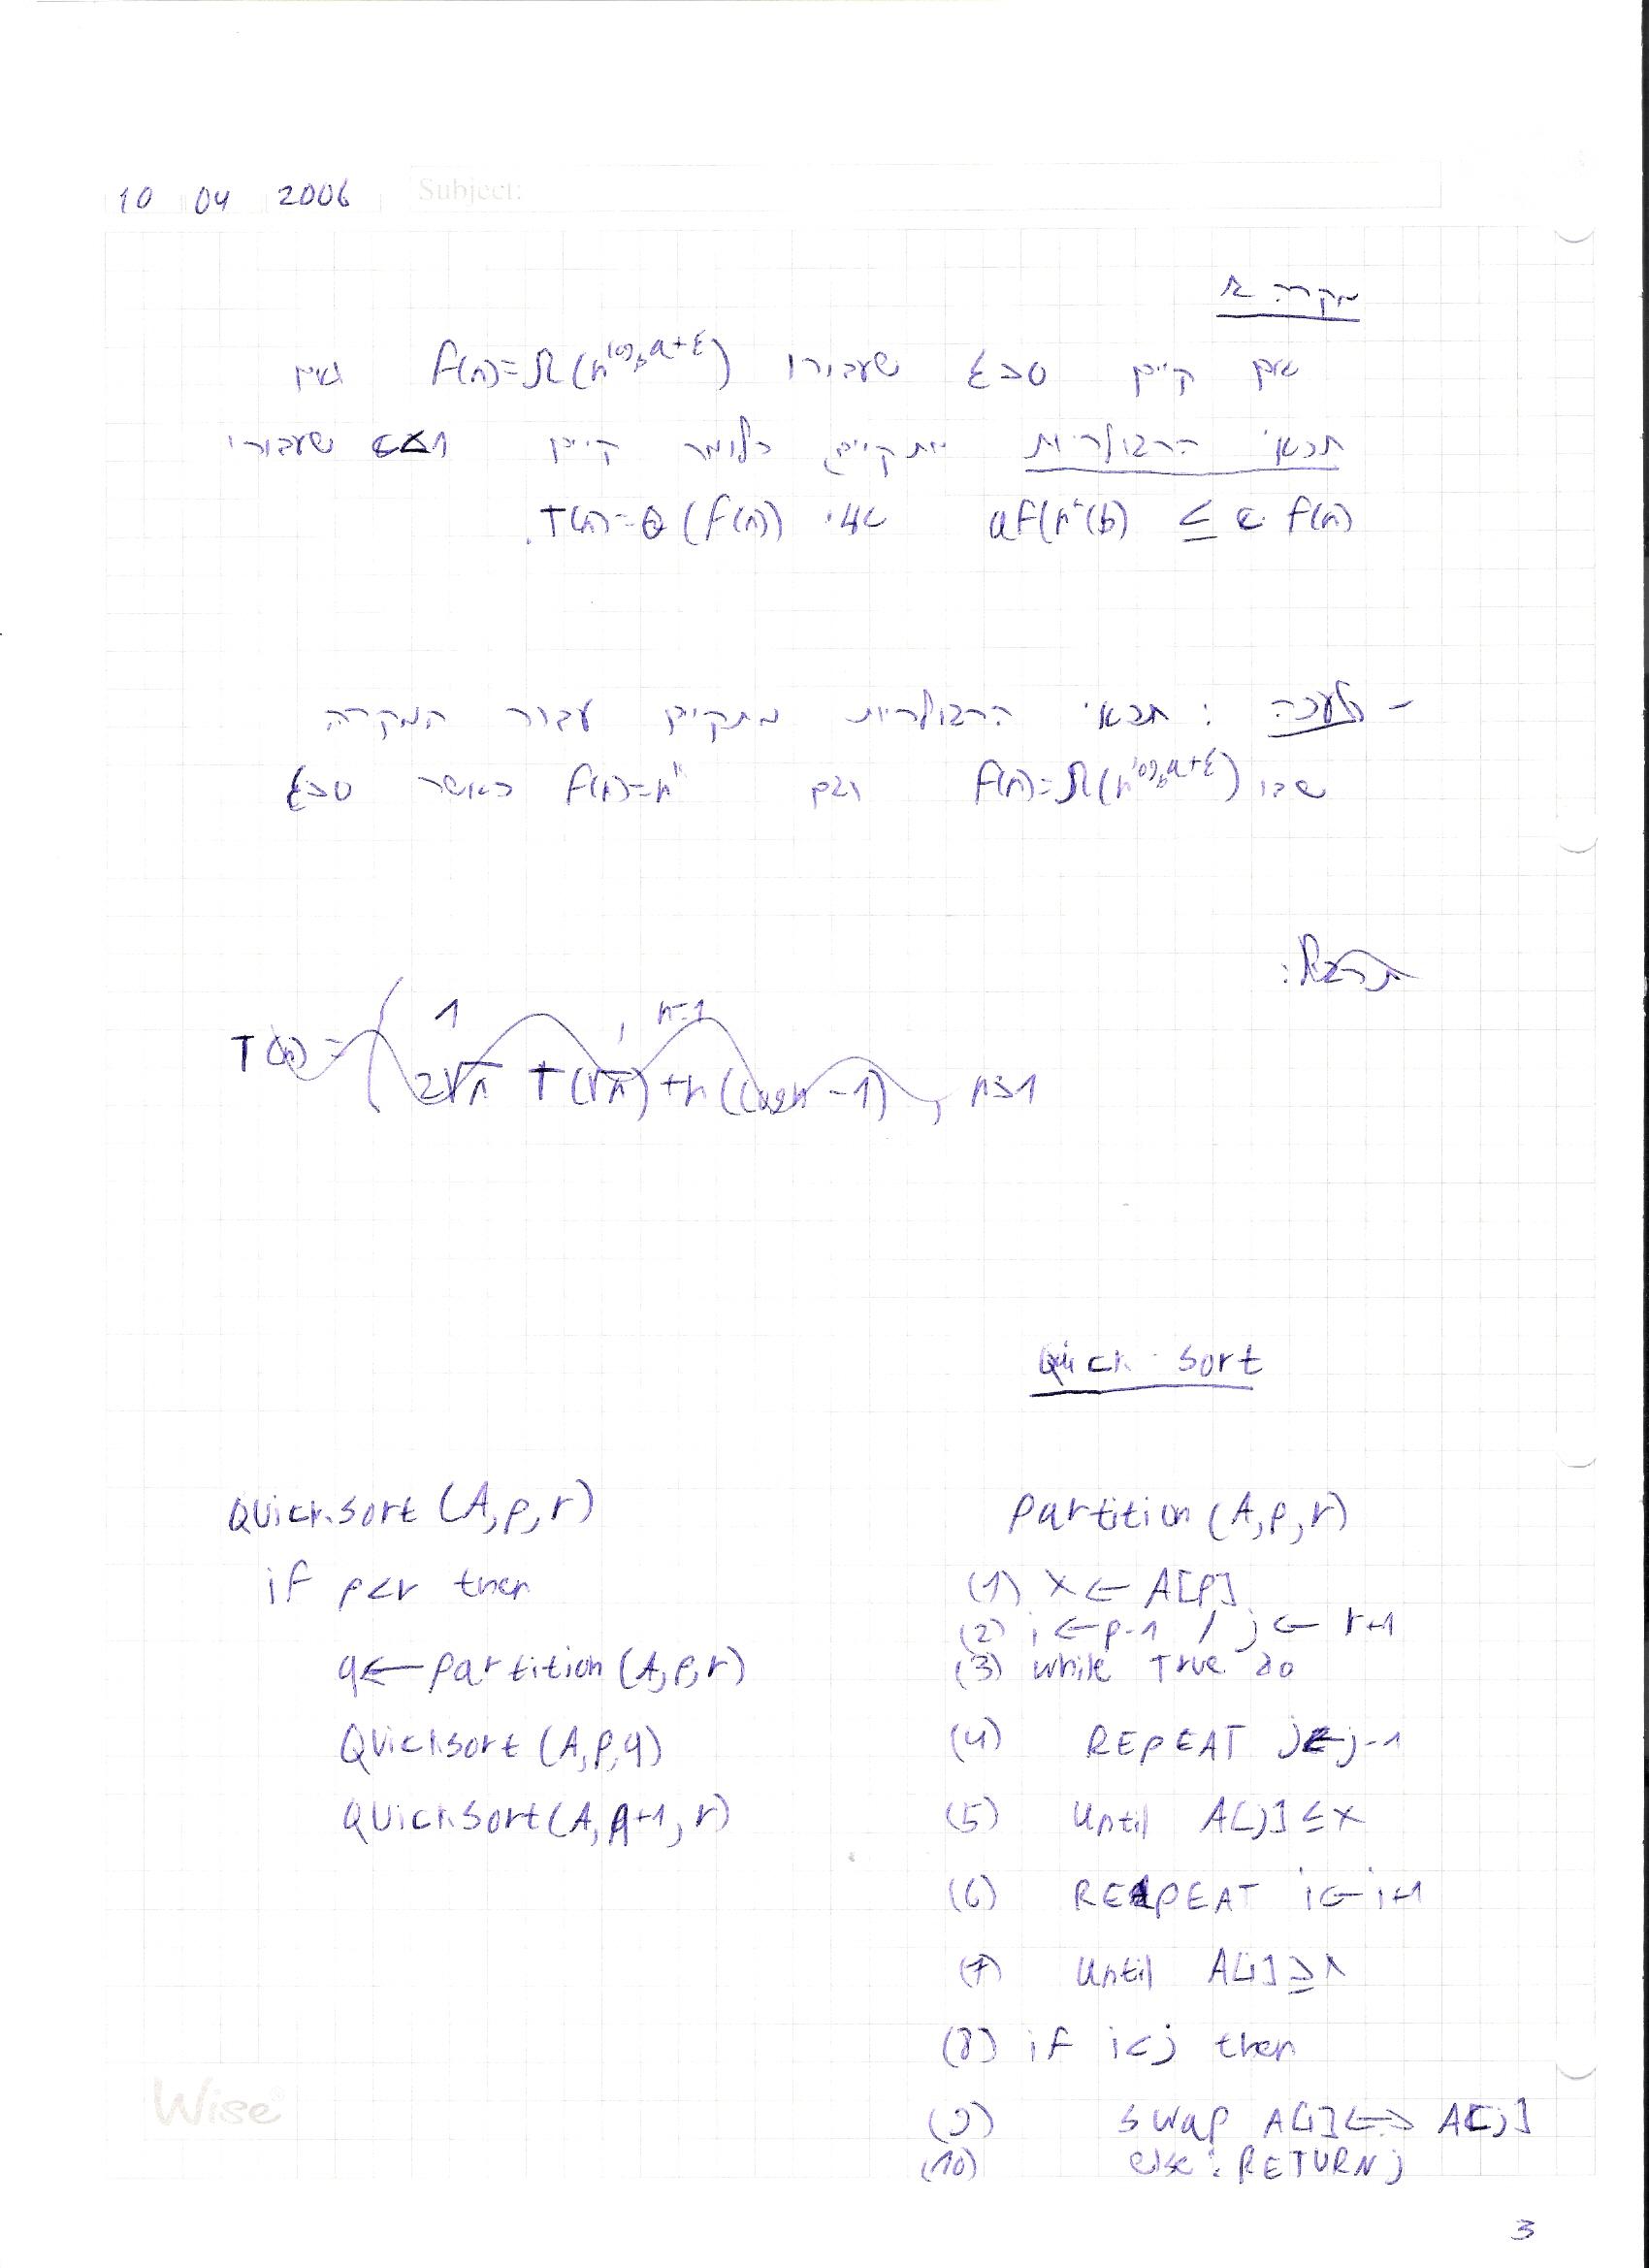 10 04 2006
Subject:
מקרה 3
אם קיים ε>0 שעבורו f(n)=Ω(n^(log_b a+ε)) וגם
תנאי הרגולריות מתקיים כלומר קיים c<1 שעבורו
af(n/b) ≤ c f(n) אזי T(n)=Θ(f(n)).
- טענה: תנאי הרגולריות מתקיים עבור המקרה
שבו f(n)=Ω(n^(log_b a+ε)) וגם f(n)=n^k כאשר ε>0
תרגיל:
T(n)= { 1 , n=1
2√n T(√n)+n(log n -1) , n>1
Quick Sort
Quicksort (A,p,r)
if p<r then
q← partition (A,p,r)
Quicksort (A,p,q)
Quicksort (A,q+1,r)
partition (A,p,r)
(1) x ← A[p]
(2) i ← p-1 / j ← r+1
(3) while True do
(4) REPEAT j←j-1
(5) until A[j] ≤ x
(6) REPEAT i←i+1
(7) until A[i] ≥ x
(8) if i<j then
(9) swap A[i] ↔ A[j]
(10) else: RETURN j
Wise
3